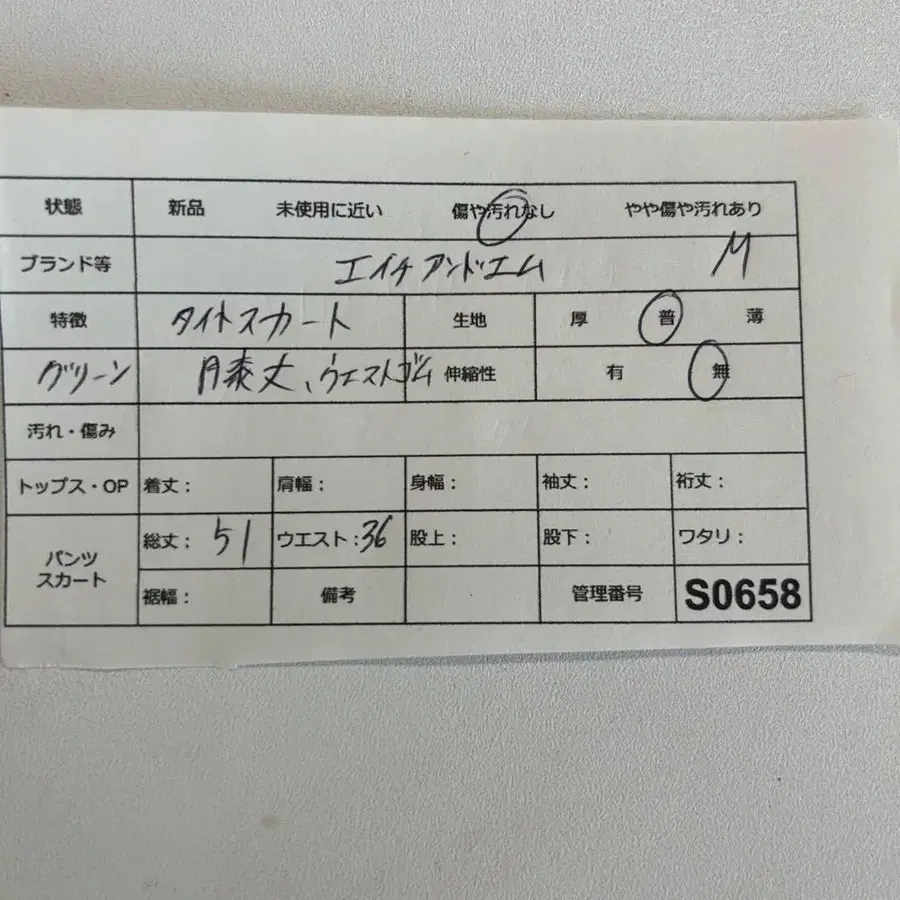 状態 新品 未使用に近い 傷や汚れなし やや傷や汚れあり
ブランド等 エイチアンドエム M
特徴 タイトスカート 生地 厚 普 薄
グリーン 膝丈、ウエストゴム 伸縮性 有 無
汚れ・傷み
トップス・OP 着丈: 肩幅: 身幅: 袖丈: 裄丈:
パンツ スカート 総丈; 51 ウエスト:36 股上: 股下: ワタリ:
裾幅: 備考 管理番号 S0658